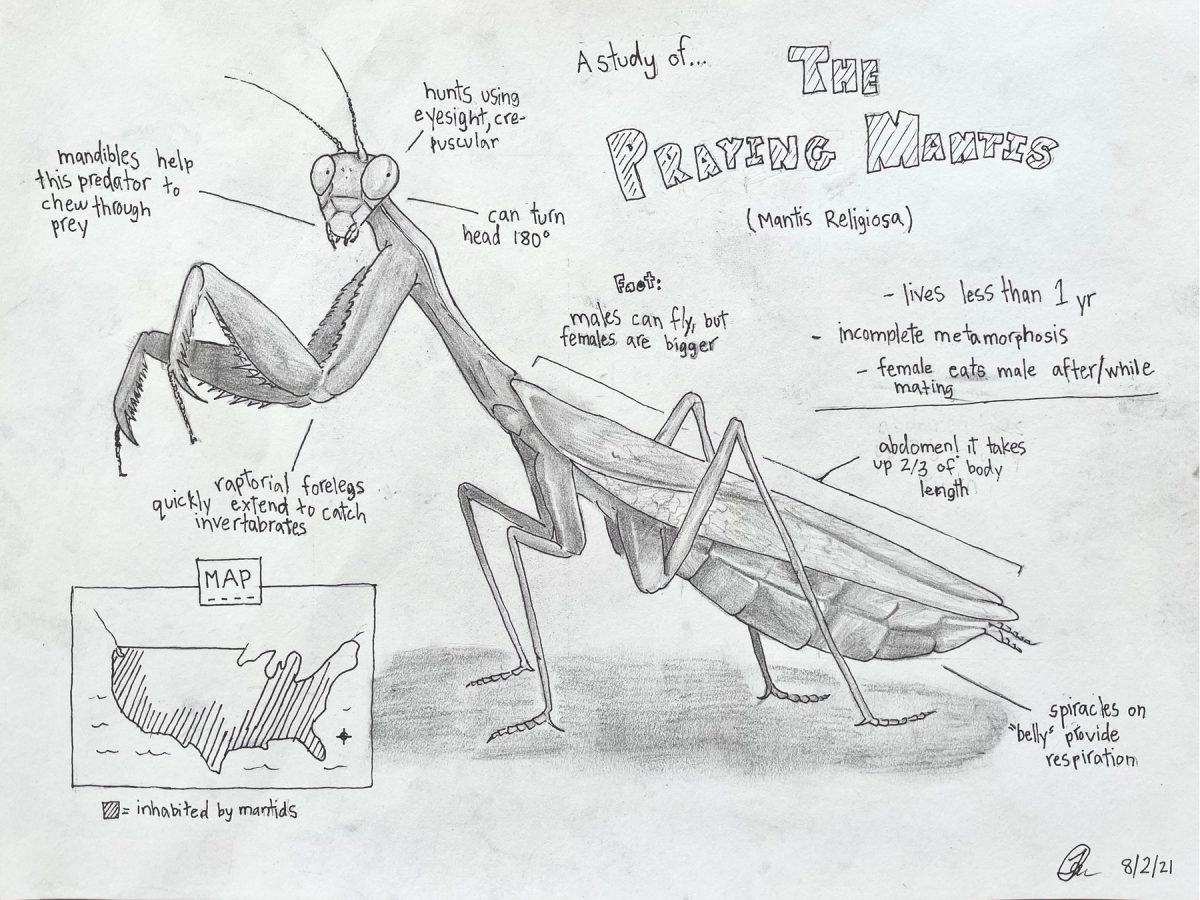 A study of...
THE
PRAYING MANTIS
(Mantis Religiosa)
hunts using
eyesight, cre-
puscular
mandibles help
this predator to
chew through
prey
can turn
head 180°
Fact:
males can fly, but
females are bigger
- lives less than 1 yr
- incomplete metamorphosis
- female eats male after/while
mating
abdomen! it takes
up 2/3 of body
length
raptorial forelegs
quickly extend to catch
invertabrates
MAP
= inhabited by mantids
spiracles on
"belly" provide
respiration
8/2/21